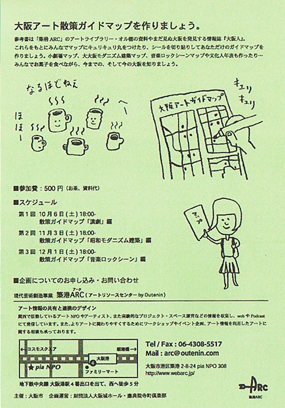 大阪アート散策ガイドマップを作りましょう。
参考書は「築港 ARC」のアートライブラリー・オル棚の資料やまだ見ぬ大阪を発見する情報誌「大阪人」。
これらをもとにみんなでマップにキュリキュリ丸をつけたり、シールを切り貼りしてあなただけのガイドマップを
作りましょう。小劇場マップ、大大阪モダニズム建築マップ、音楽ロックシーンマップや文化人年表も作ったり…
みんなでお菓子を食べながら、今までの、そして今の大阪を知りましょう。
なるほどねえ
ほほー
へー
キュリキュリ
大阪アートガイドマップ
マップ
■参加費:500円(お茶、資料代)
■スケジュール
第1回 10月6日(土) 18:00-
散策マップ「演劇」編
第2回 11月3日(土) 18:00-
散策マップ「昭和モダニズム建築」編
第3回 12月1日(土) 18:00-
散策マップ「音楽ロックシーン」編
■企画についてのお申し込み・お問い合わせ
現代芸術創造事業 築港ARC(アートリソースセンター by Outenin)
アーク
アート情報の共有と画異のデザイン
コスモスクエア
大阪港
★pia NPO
ファミリーマート
地下鉄中央線 大阪港駅 4番出口を出て、西へ徒歩5分
Tel / Fax : 06-4308-5517
Mail : arc@outenin.com
大阪市港区築港 2-8-24 pia NPO 308
http://www.webarc.jp/
ARC
築港ARC
主催:大阪市 企画運営:財団法人大阪城ホール・應典院寺町倶楽部